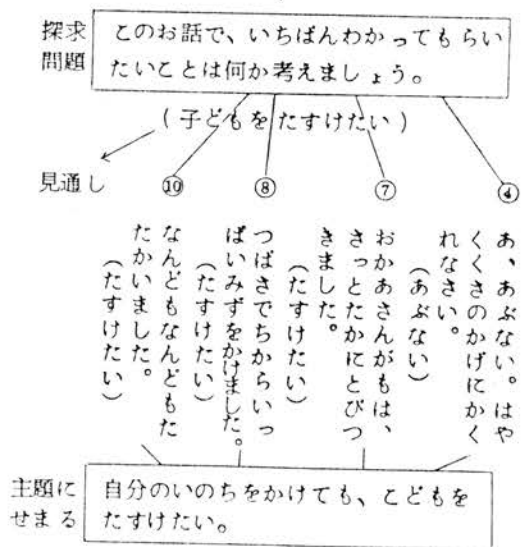 探求
問題
このお話で、いちばんわかってもらい
たいことは何か考えましょう。
(子どもをたすけたい)
見通し
⑩
⑧
⑦
④
あ、あぶない。はや
くくさのかげにかく
れなさい。
(あぶない)
おかあさんがもは、
さっとたかにとびつ
きました。
(たすけたい)
つばさでちからいっ
ぱいみずをかけました。
(たすけたい)
なんどもなんどもた
たかいました。
(たすけたい)
主題に
せまる
自分のいのちをかけても、こどもを
たすけたい。